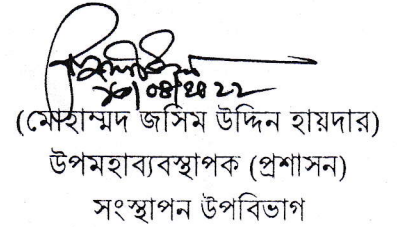 (মোহাম্মদ জসিম উদ্দিন হায়দার)
উপমহাব্যবস্থাপক (প্রশাসন)
সংস্থাপন উপবিভাগ